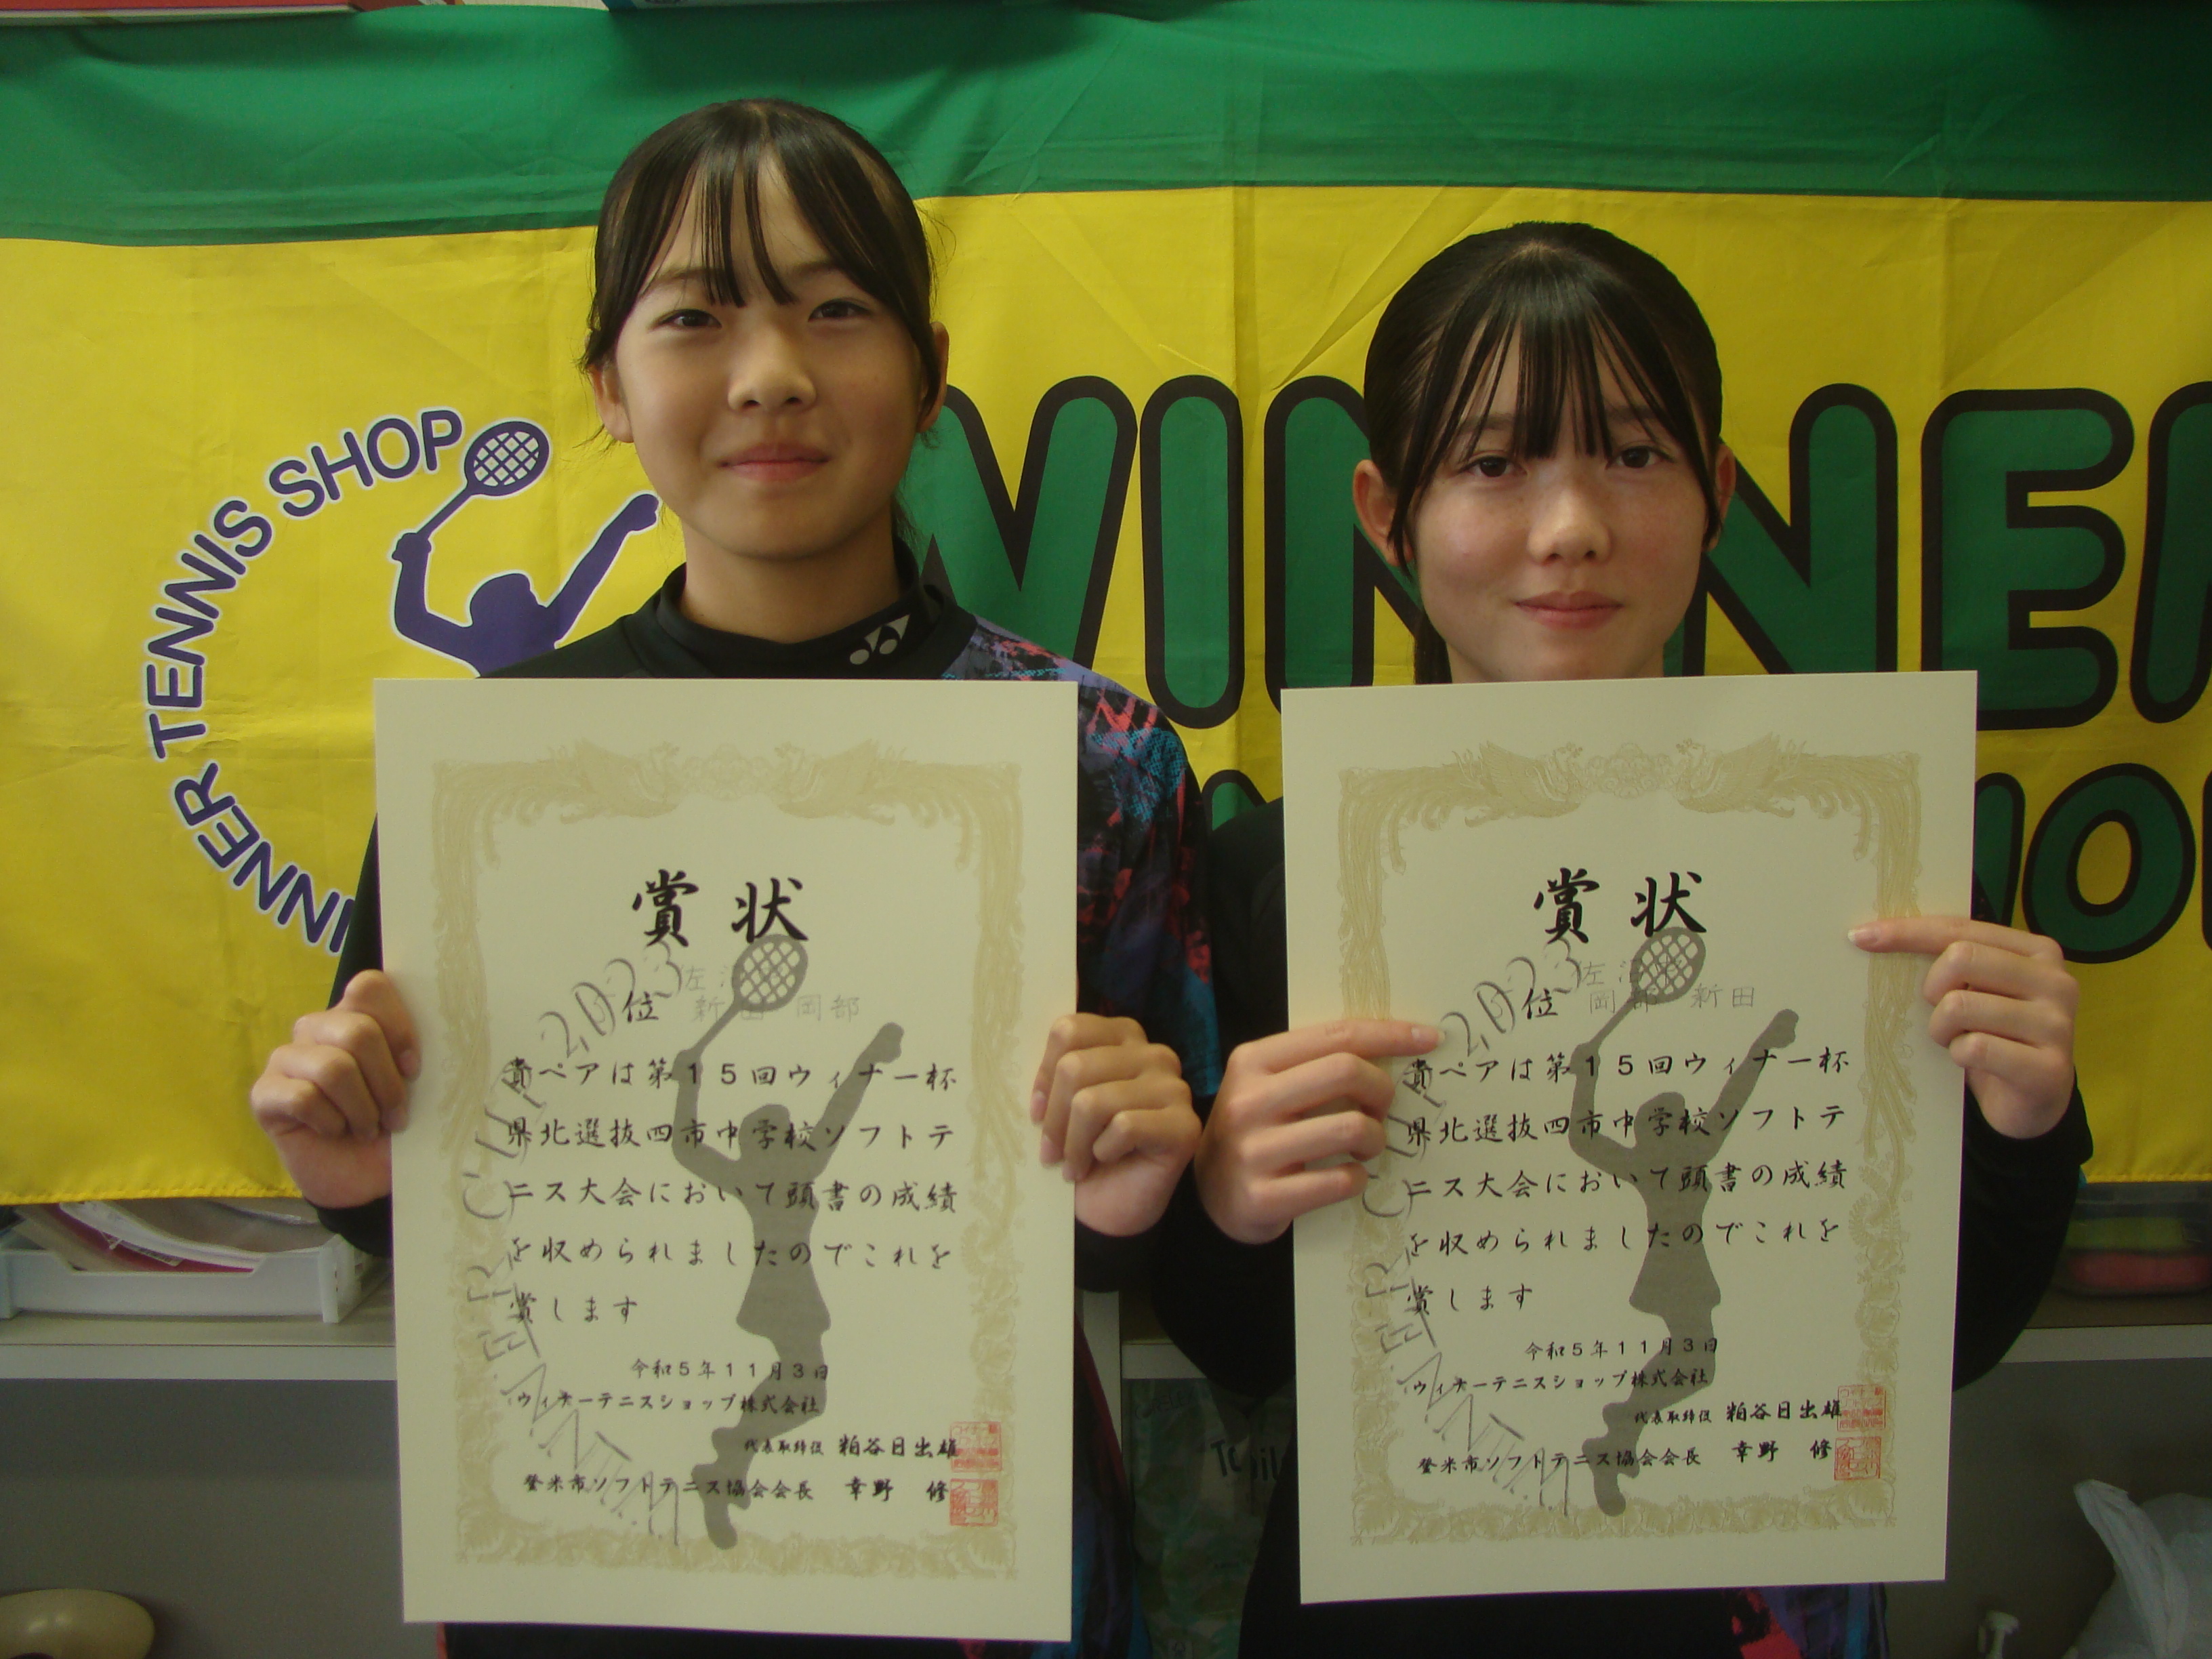 WINNER TENNIS SHOP
WINNER
賞状
2023
佐沼
位 新田 岡部
貴ペアは第15回ウィナー杯
県北選抜四市中学校ソフトテ
ニス大会において頭書の成績
を収められましたのでこれを
賞します
令和5年11月3日
ウィナーテニスショップ株式会社
代表取締役 粕谷日出雄
登米市ソフトテニス協会会長 幸野 修
WINNER CUP
賞状
2023
佐沼
位 岡部 新田
貴ペアは第15回ウィナー杯
県北選抜四市中学校ソフトテ
ニス大会において頭書の成績
を収められましたのでこれを
賞します
令和5年11月3日
ウィナーテニスショップ株式会社
代表取締役 粕谷日出雄
登米市ソフトテニス協会会長 幸野 修
WINNER CUP